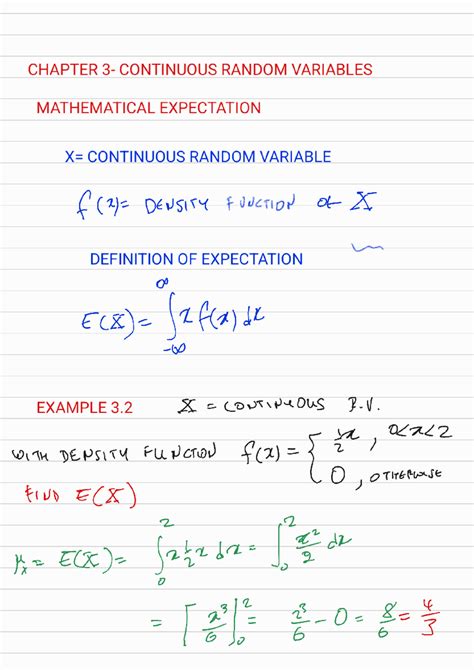 CHAPTER 3- CONTINUOUS RANDOM VARIABLES
MATHEMATICAL EXPECTATION
X= CONTINUOUS RANDOM VARIABLE
f(x)= DENSITY FUNCTION of X
DEFINITION OF EXPECTATION
E(X) = ∫_{-∞}^{∞} x f(x) dx
EXAMPLE 3.2 X = CONTINUOUS R.V.
WITH DENSITY FUNCTION f(x) = { ½x , 0<x<2
0 , OTHERWISE
FIND E(X)
μ_x = E(X) = ∫_0^2 x ½ x dx = ∫_0^2 x²/2 dx
= [x³/6]_0^2 = 2³/6 - 0 = 8/6 = 4/3